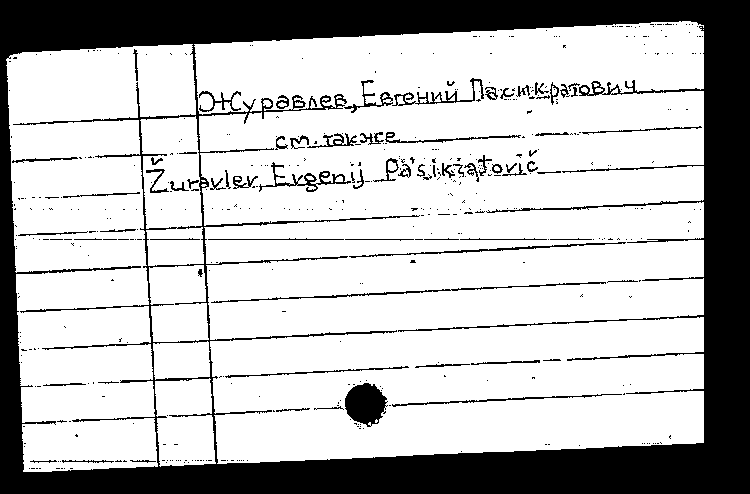 Журавлев, Евгений Пасикратович
см. также
Žuravlev, Evgenij Pasikratovič